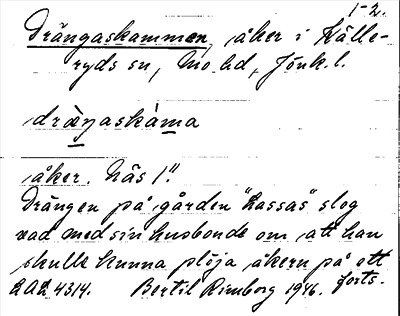 1-2.
Drängaskammen, åker i Kålle-
ryds sn, Mo hd, Jönk. l.
dràŋaskàma
åker. Näs 1".
Drängen på gården "Lassas" slog
vad med sin husbonde om att han
skulle kunna plöja åkern på ett
forts.
LAL 4314. Bertil Rimborg 1946.